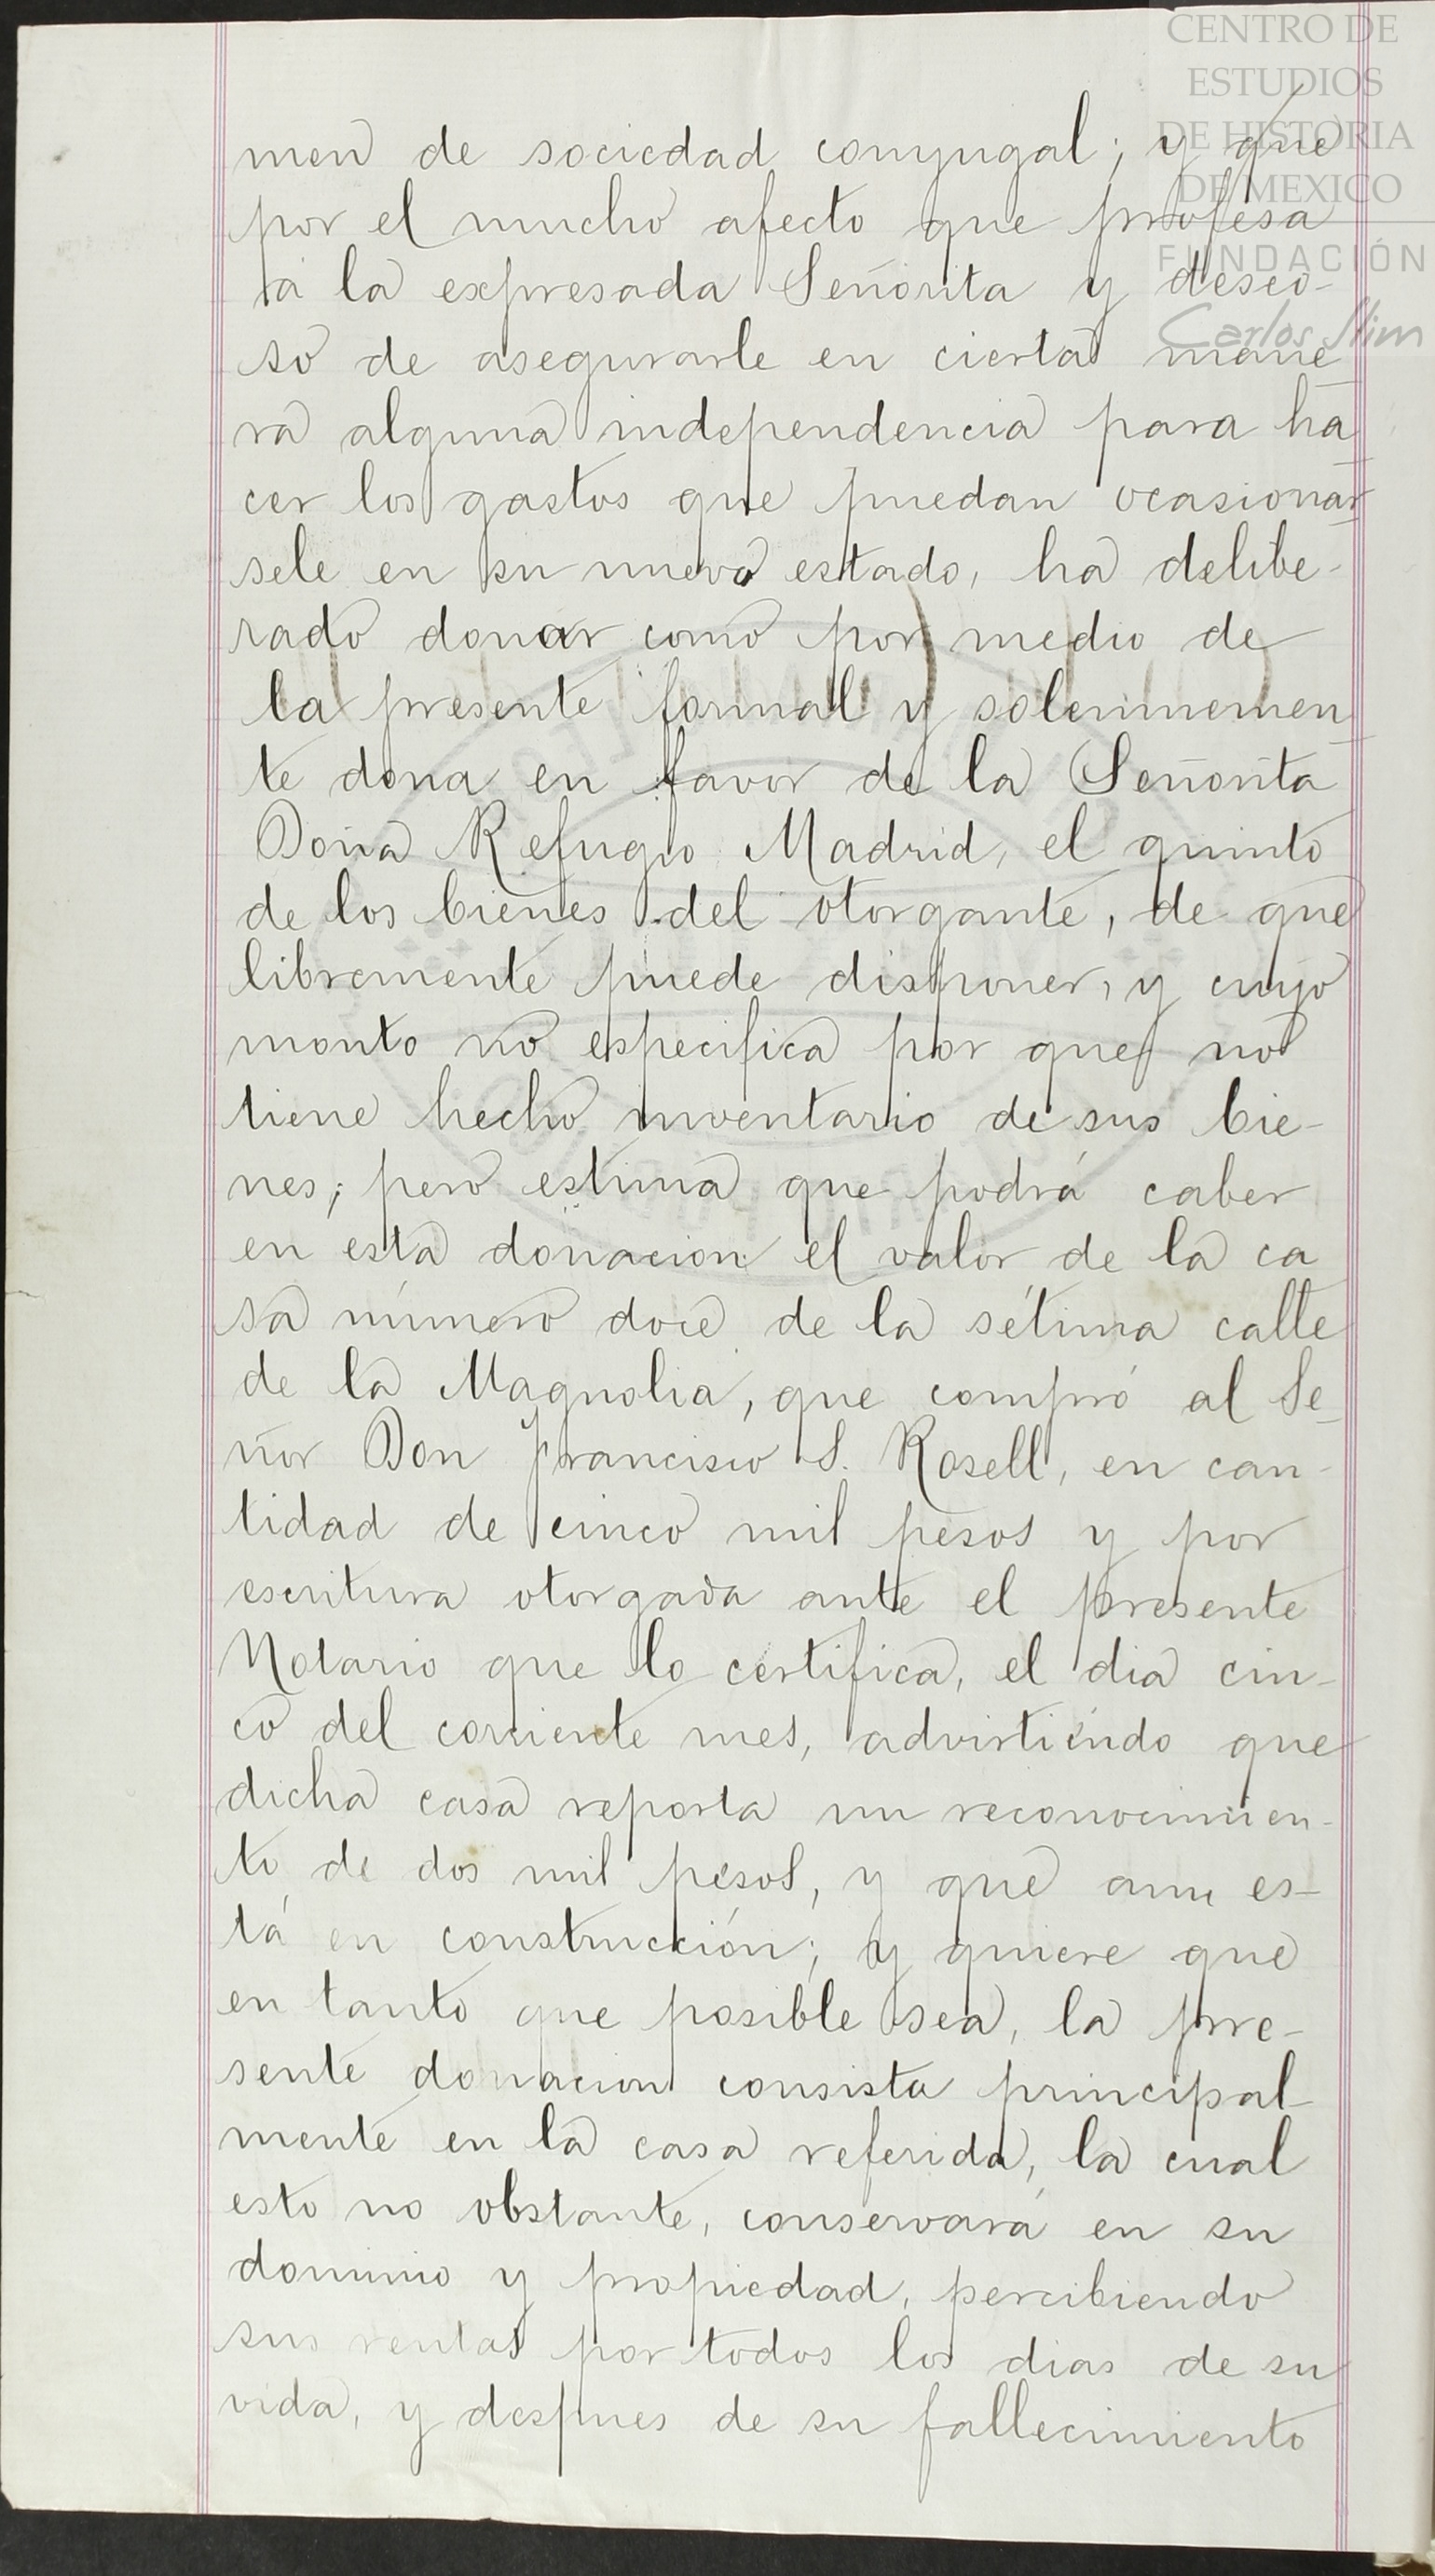 CENTRO DE
ESTUDIOS
DE HISTORIA
DE MEXICO
FUNDACIÓN
Carlos Slim
men de sociedad conyugal; y que
por el mucho afecto que profesa
á la expresada Señorita y deseo-
so de asegurarle en cierta mane
ra alguna independencia para ha
cer los gastos que puedan ocasionar
sele en su nuevo estado, ha delibe-
rado donar como por medio de
la presente formal y solemnemen
te dona en favor de la Señorita
Doña Refugio Madrid, el quinto
de los bienes del otorgante, de que
libremente puede disponer, y cuyo
monto no especifica por que no
tiene hecho inventario de sus bie-
nes; pero estima que podrá caber
en esta donacion el valor de la ca
sa número doce de la sétima calle
de la Magnolia, que compró al Se-
ñor Don Francisco S. Rosell, en can-
tidad de cinco mil pesos y por
escritura otorgada ante el presente
Notario que lo certifica, el dia cin-
co del corriente mes, advirtiéndo que
dicha casa reporta un reconocimien-
to de dos mil pesos, y que aun es-
tá en construcción; y quiere que
en tanto que posible sea, la pre-
sente donacion consista principal-
mente en la casa referida, la cual
esto no obstante, conservará en su
dominio y propiedad, percibiendo
sus rentas por todos los dias de su
vida, y despues de su fallecimiento